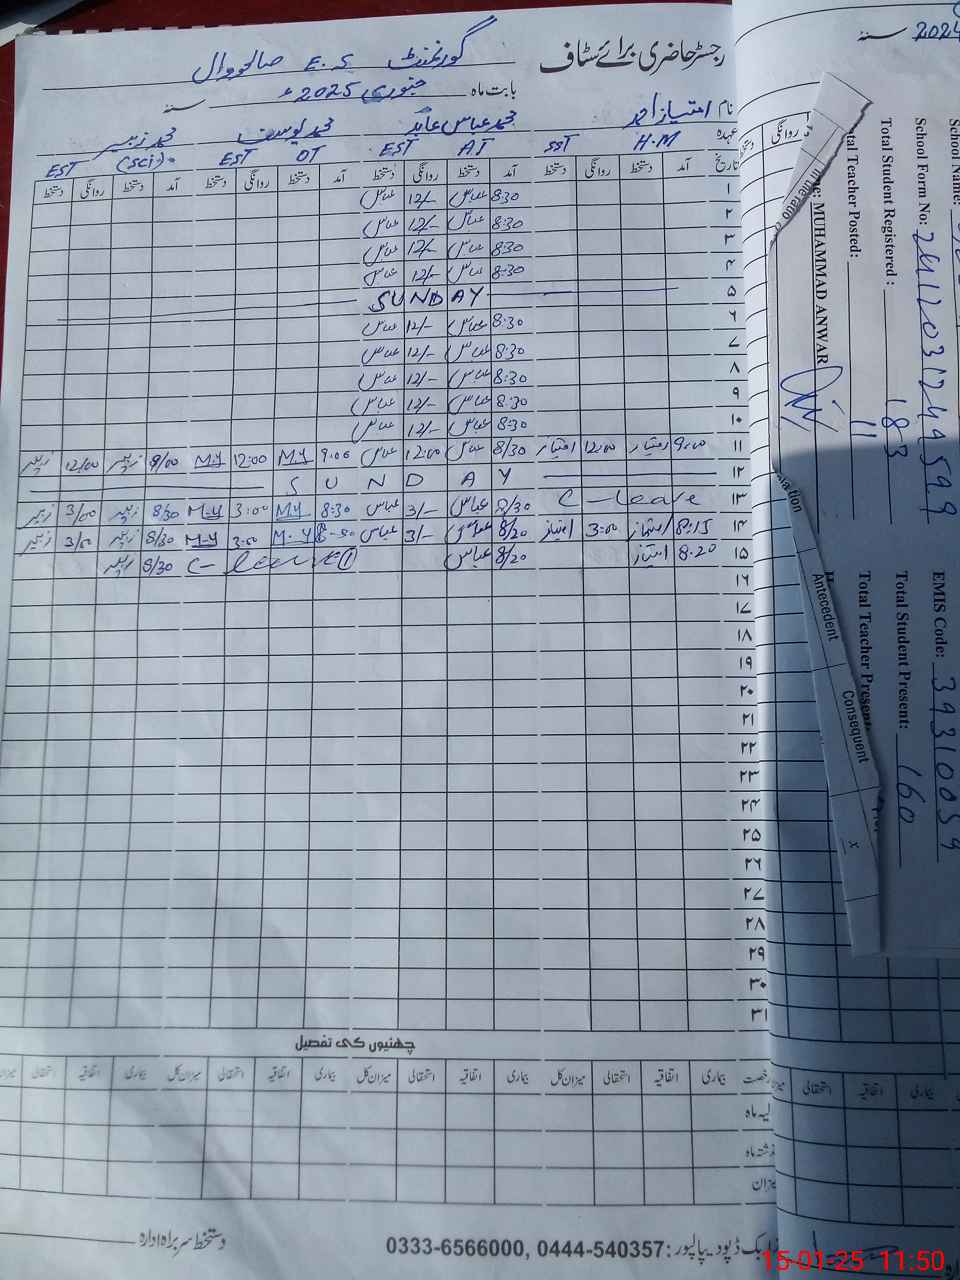 رجسٹر حاضری برائے سٹاف
گورنمنٹ E.S صالحووال
بابت ماہ جنوری 2025ء سنہ
نام امتیاز احمد محمد عباس عابد محمد یوسف محمد زبیر
عہدہ H.M SST AT EST OT EST (Sci) EST
تاریخ آمد دستخط روانگی دستخط آمد دستخط روانگی دستخط آمد دستخط روانگی دستخط آمد دستخط روانگی دستخط
۱ 8:30 عباس 12/- عباس
۲ 8:30 عباس 12/- عباس
۳ 8:30 عباس 12/- عباس
۴ 8:30 عباس 12/- عباس
۵ SUNDAY
۶ 8:30 عباس 12/- عباس
۷ 8:30 عباس 12/- عباس
۸ 8:30 عباس 12/- عباس
۹ 8:30 عباس 12/- عباس
۱۰ 8:30 عباس 12/- عباس
۱۱ 9:00 امتیاز 12:00 امتیاز 8/30 عباس 12:00 عباس 9:00 M.Y 12:00 M.Y 9/00 زبیر 12/00 زبیر
۱۲ SUNDAY
۱۳ C-leave 8/30 عباس 3/- عباس 8:30 M.Y 3:00 M-Y 8/30 زبیر 3/00 زبیر
۱۴ 8:15 امتیاز 3:00 امتیاز 8/20 عباس 3/- عباس M.Y 3:00 M-Y 8/30 زبیر 3/00 زبیر
۱۵ 8:20 امتیاز 8/20 عباس C-leave ① 8/30 زبیر
۱۶
۱۷
۱۸
۱۹
۲۰
۲۱
۲۲
۲۳
۲۴
۲۵
۲۶
۲۷
۲۸
۲۹
۳۰
۳۱
چھٹیوں کی تفصیل
رخصت بیماری اتفاقیہ استحقاقی میزان کل بیماری اتفاقیہ استحقاقی میزان کل بیماری اتفاقیہ استحقاقی میزان کل بیماری اتفاقیہ استحقاقی میزان
لیہ ماہ
ذشتہ ماہ
میزان
بک ڈپو دیپالپور: 0444-540357 ,0333-6566000
دستخط سربراہ ادارہ
سنہ 2024
روانگی
School Name:
School Form No: 2412031249599
EMIS Code: 39310059
Total Student Registered : 183
Total Student Present: 160
tal Teacher Posted: 11
Total Teacher Present
MUHAMMAD ANWAR
Antecedent
Consequent
x
استحقاقی اتفاقیہ بیماری
15-01-25 11:50